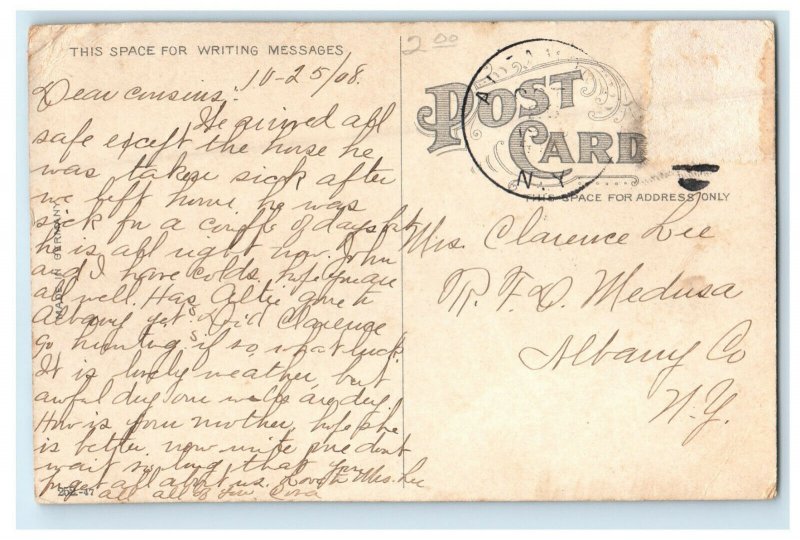 THIS SPACE FOR WRITING MESSAGES
2 00
10-25/08.
Dear cousins:
We arived all
safe except the horse he
was taken sick after
we left home he was
sick for a couple of days but
he is all right now. John
and I have colds, hope you are
all well. Has Allie gone to
Albany yet. Did Clarence
go hunting if so, what luck.
It is lovely weather, but
awful dry our wells are dry.
How is your mother, hope she
is better. now write
wait so long that you
forget all about us. Love to Mrs. Lee
all of you Cora
252-17
MADE IN GERMANY
POST
CARD
N.Y.
THIS SPACE FOR ADDRESS ONLY
Mrs. Clarence Lee
R. F. D. Medusa
Albany Co
N.Y.